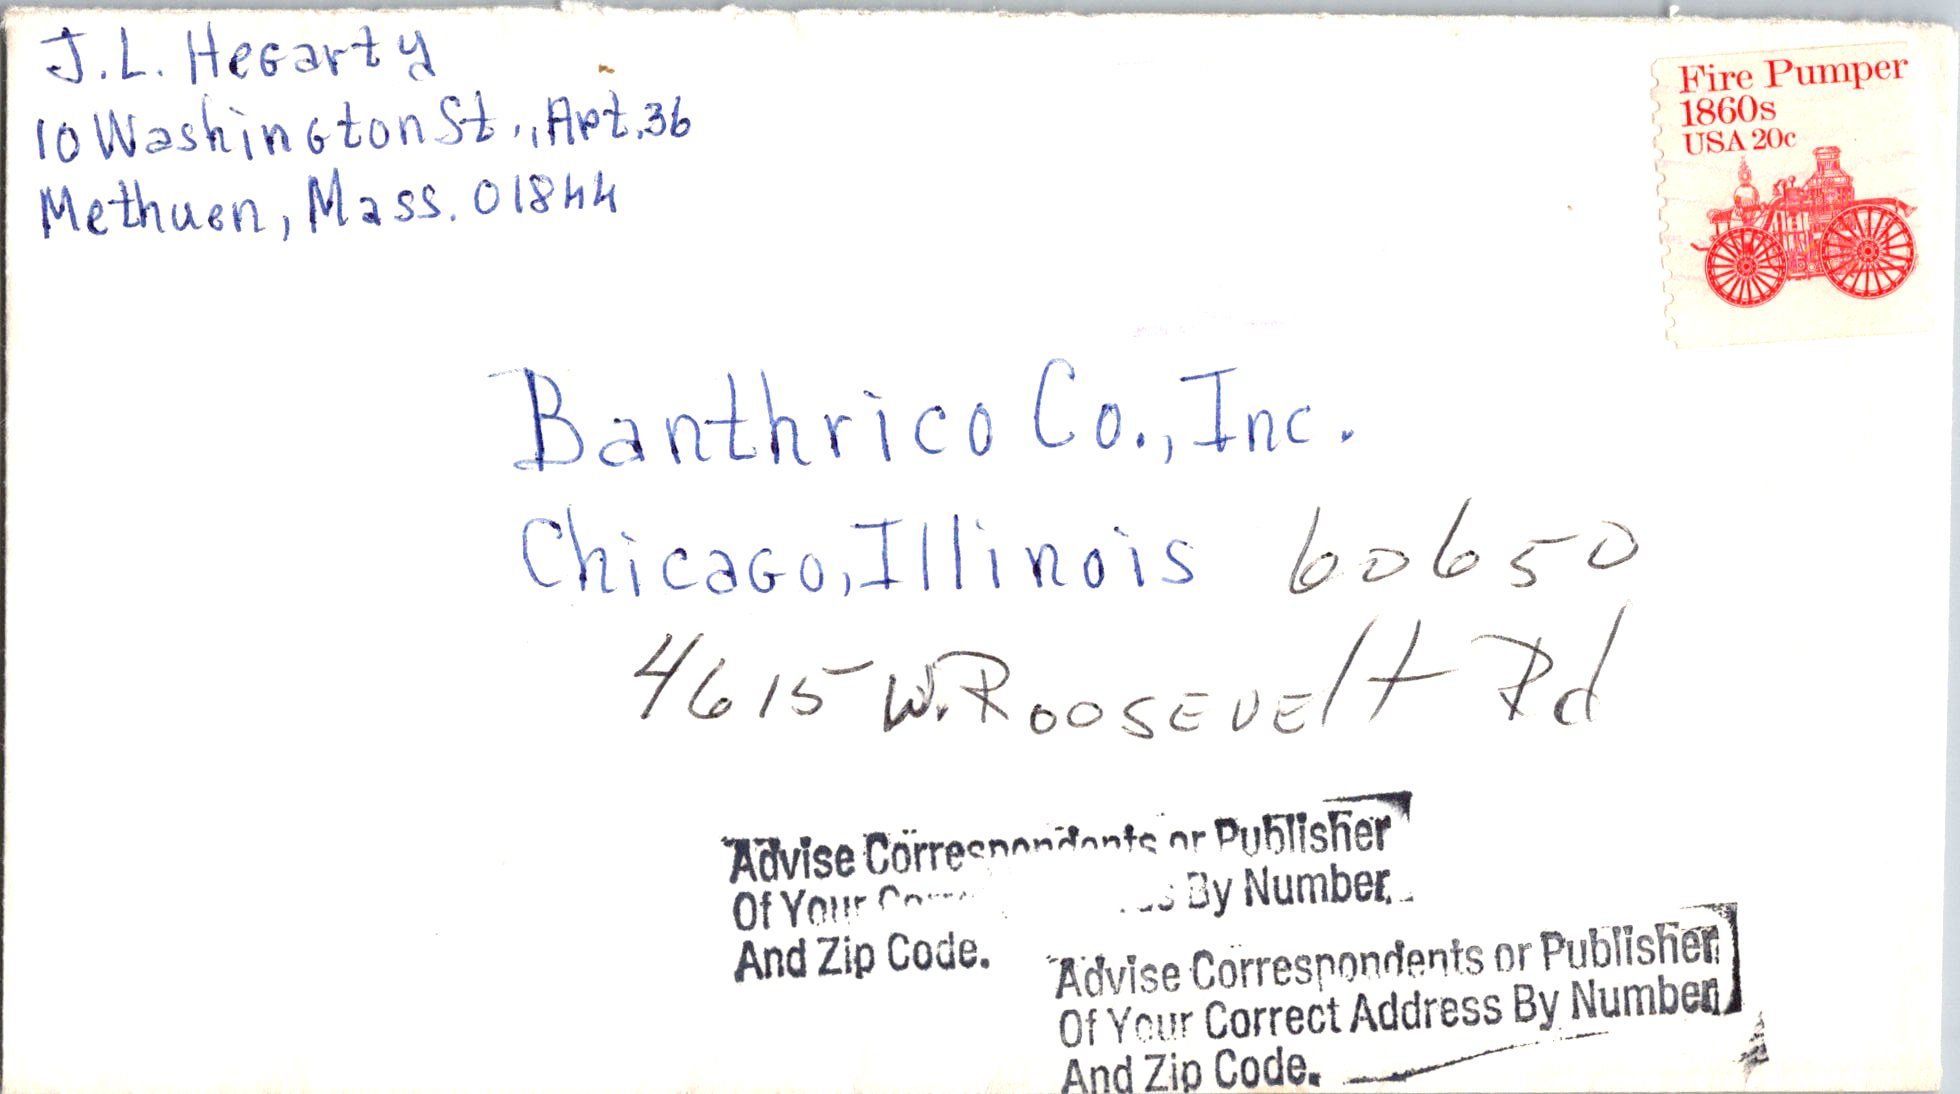 J.L. Hegarty
10 Washington St., Apt. 36
Methuen, Mass. 01844
Fire Pumper
1860s
USA 20c
Banthrico Co., Inc.
Chicago, Illinois 60650
4615 W. Roosevelt Rd
Advise Correspondents or Publisher
Of Your By Number.
And Zip Code.
Advise Correspondents or Publisher
Of Your Correct Address By Number
And Zip Code.